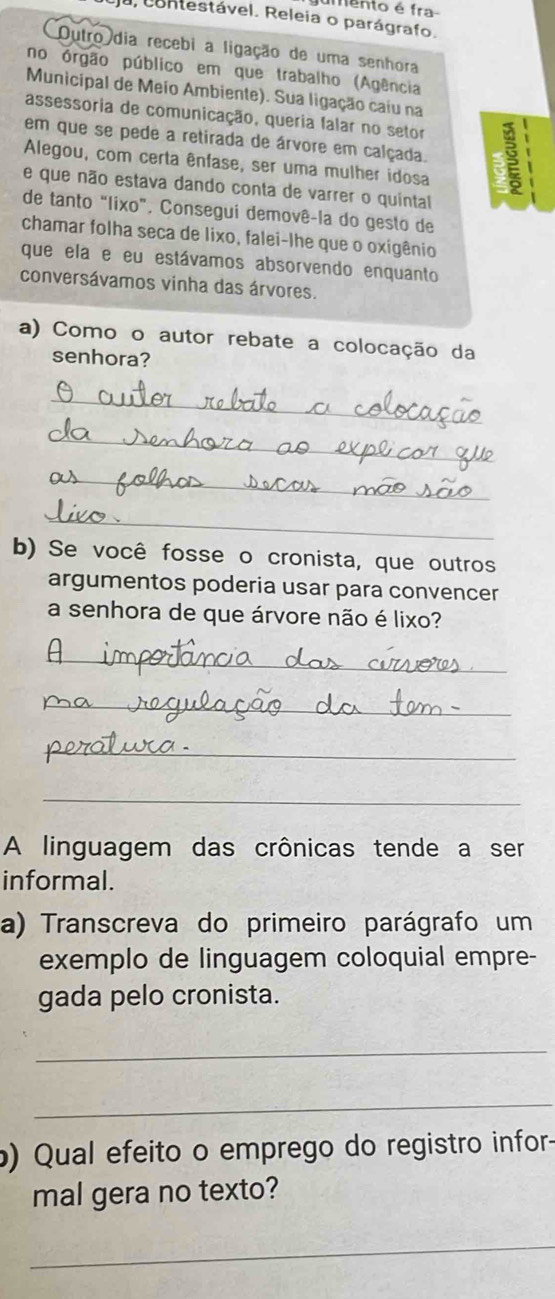 contestável. Releia o parágrafo.
é fra-
Outro dia recebi a ligação de uma senhora
no órgão público em que trabalho (Agência
Municipal de Meio Ambiente). Sua ligação caiu na
assessoria de comunicação, queria falar no setor
em que se pede a retirada de árvore em calçada.
Alegou, com certa ênfase, ser uma mulher idosa
e que não estava dando conta de varrer o quintal
de tanto "lixo". Consegui demovê-la do gesto de
chamar folha seca de lixo, falei-lhe que o oxigênio
que ela e eu estávamos absorvendo enquanto
conversávamos vinha das árvores.
LÍNGUA
PORTUGUESA
a) Como o autor rebate a colocação da
senhora?
O autor rebate a colocação
da senhora ao explicar que
as folhas secas não são
lixo.
b) Se você fosse o cronista, que outros
argumentos poderia usar para convencer
a senhora de que árvore não é lixo?
A importância das árvores
na regulação da tem-
peratura.
A linguagem das crônicas tende a ser
informal.
a) Transcreva do primeiro parágrafo um
exemplo de linguagem coloquial empre-
gada pelo cronista.
b) Qual efeito o emprego do registro infor-
mal gera no texto?